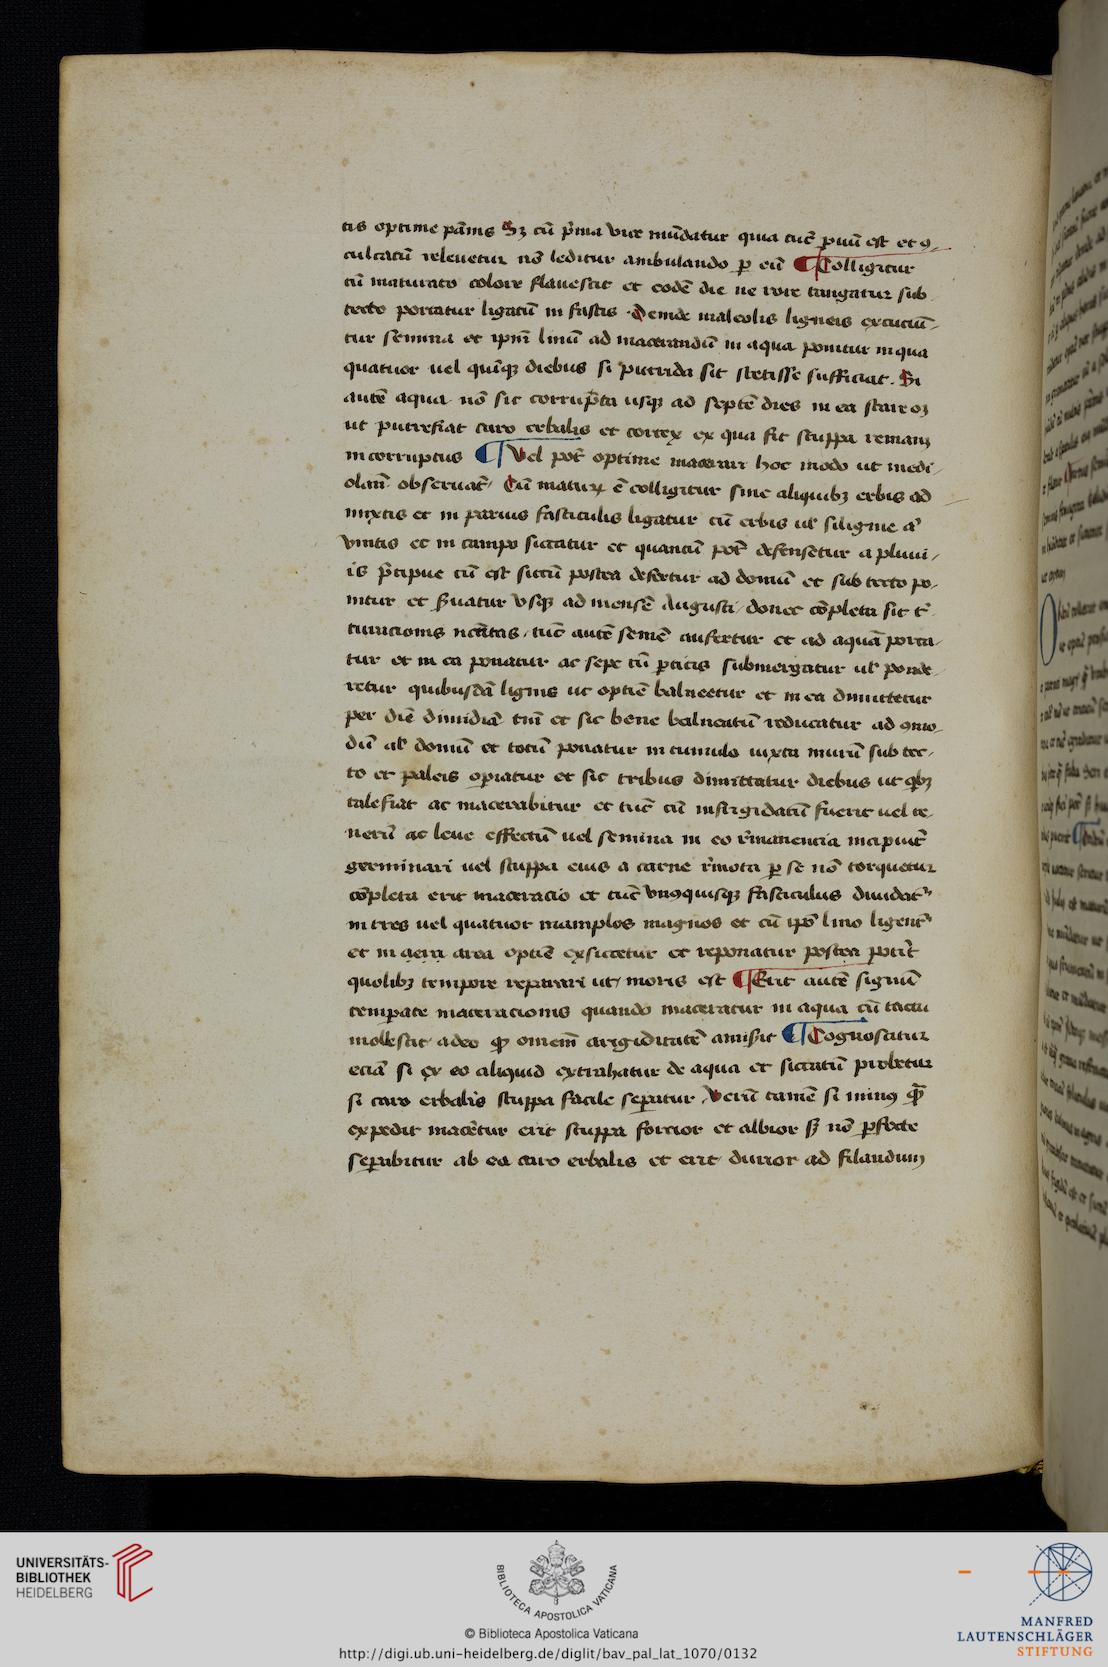 tis optime pāms Sȝ cū p̄ma vice mūdatur quia tūc p̱uū est et ꝯ
culcatū releuetur nō leditur ambulando ꝑ eū ¶ Colligitur
cū maturato colore flauescit et eodē die ne rore tangatur sub
tecto portatur ligatū in fascis . Deinde maleolis ligneis excuciū-
tur semina et ip̄m linū ad macerandū in aqua ponitur in qua
quatuor uel quīqȝ diebus si putrida sit stetisse sufficiat . Si
autē aqua nō sit corrupta usqȝ ad septē dies in ea stare oȝ
ut putrefiat caro erbalis et cortex ex qua fit stuppa remanȝ
incorruptus ¶ Vel pōt optime macerari hoc modo ut medi
olani obseruat᷑ . Cū maturȝ ē colligitur sine aliquibȝ erbis ad
mixtis et in paruis fasciculis ligatur cū erbis ul̄ siligine
vnitis et in campo siccatur et quantū pōt defensetur a pluui
is p̄cipue cū est siccū postea defertur ad domū et sub tecto po-
nitur et s̄uatur vsqȝ ad mensē Augusti donec cōpleta sit
turacionis nc̄citas . tūc autē semē aufertur et ad aquā porta
tur et in ea ponatur ac sepe cū ꝑticis submergatur ul̄ ponde
retur quibusdā lignis ut optīe balneetur et in ea dimittetur
per diē dimidiā tm̄ et sic bene balneatū reducatur ad
dū al̄ domū et totū ponatur in cumulo iuxta murū sub tec-
to et paleis oꝑiatur et sic tribus dimittatur diebus ut
calefiat ac macerabitur et tūc cū infrigidatū fuerit uel te
nerū ac leue effectū uel semina in eo r̄manencia incipiūt
germinari uel stuppa eius a carne r̄mota ꝑ se nō torquetur
cōpleta erit maceracio et tūc vnusquisqȝ fasciculus diuidat᷑
in tres uel quatuor mamplos magnos et cū ip̄o lino ligent᷑
et in aeri area optīe exsiccetur et reponatur postea potit
quolibȝ tempore reparari ut moris est ¶ Erit autē signū
temperate maceracionis quando maceratur in aqua cū tactu
mollescit adeo ꝙ omem̄ arigiditatē amis̄it ¶ Cognoscitur
eciā si ex eo aliquid extrahatur de aqua et siccatū probetur
si caro erbalis stuppa facile seꝑatur . Verū tamē si minꝰ qȝ
expedit macētur erit stuppa forcior et albior sȝ nō ꝑfecte
seꝑabitur ab ea caro erbalis et erit durior ad filandum
UNIVERSITÄTS-
BIBLIOTHEK
HEIDELBERG
BIBLIOTECA APOSTOLICA VATICANA
© Biblioteca Apostolica Vaticana
http://digi.ub.uni-heidelberg.de/diglit/bav_pal_lat_1070/0132
MANFRED
LAUTENSCHLÄGER
STIFTUNG